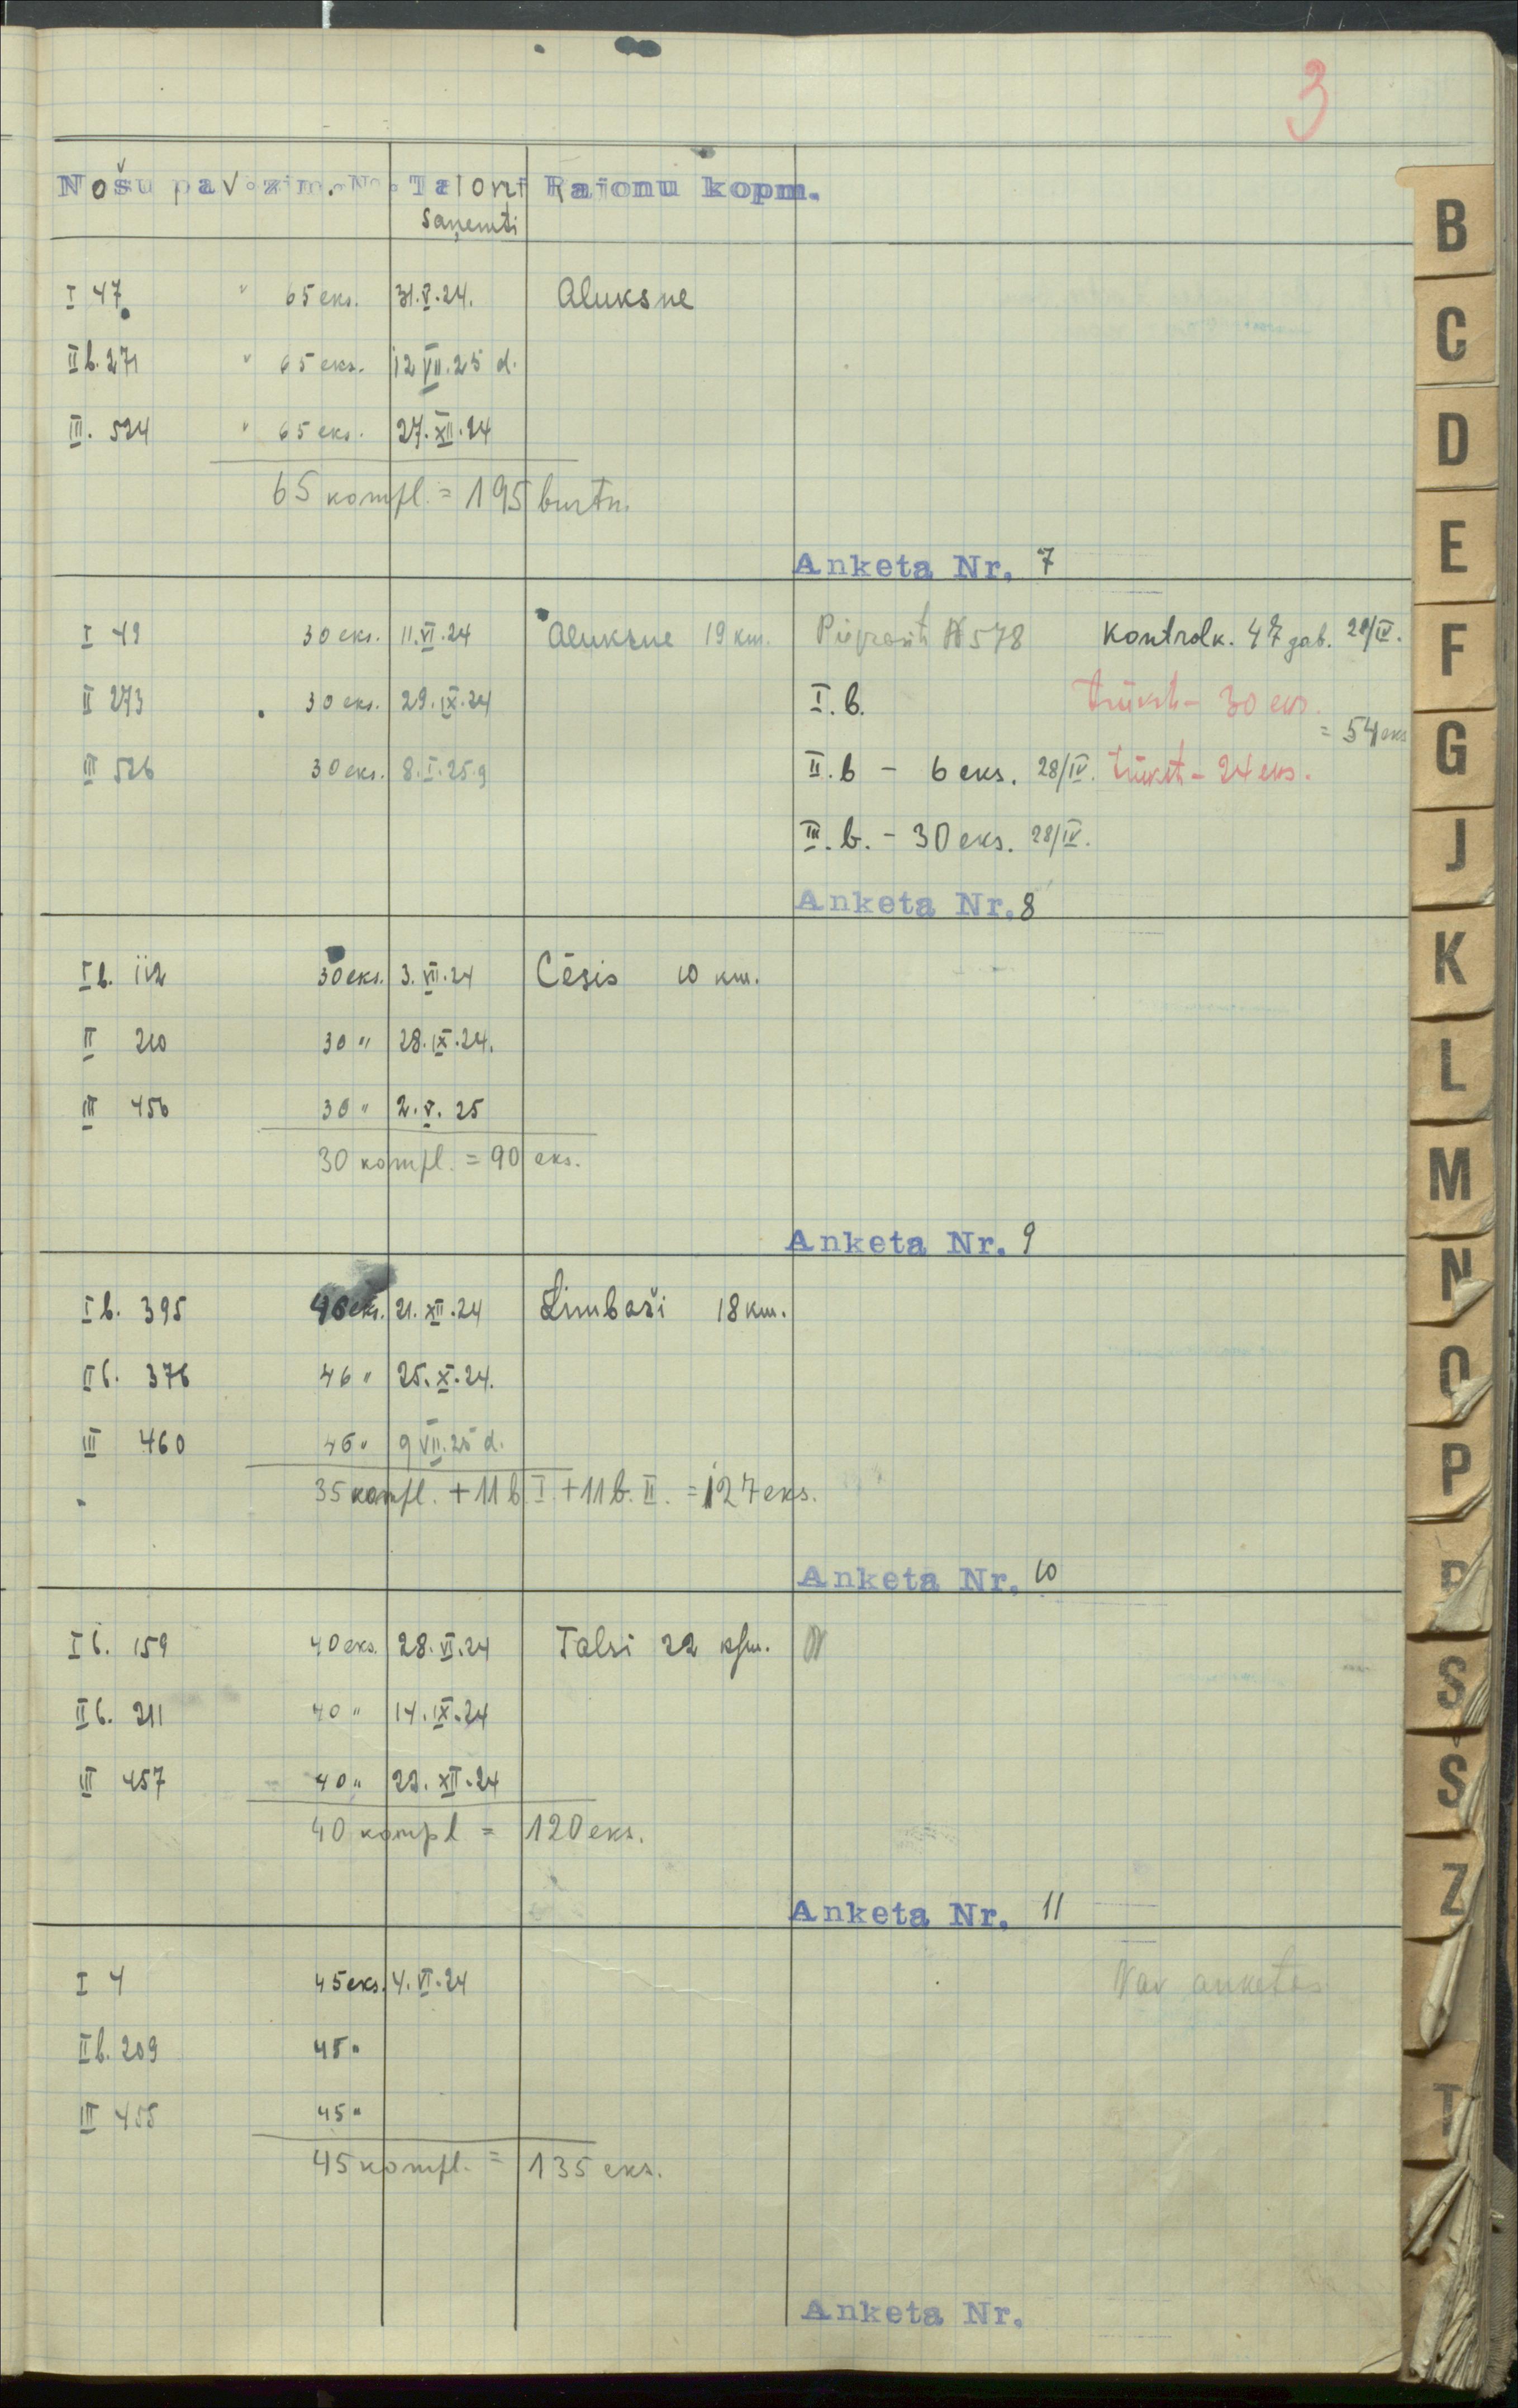 3
Nošu pavadzim. No. Taloni Rajonu kopm.
saņemti
I 47 " 65 eks. 31.V.24. Aluksne
II b. 271 " 65 eks. 12 VII.25 d.
III. 524 " 65 eks. 27.XII.24
65 kompl. = 195 burtn.
Anketa Nr. 7
I 49 30 eks. 11.VI.24 Aluksne 19 km. N 578 Kontrolk. 47 gab. 28/IV.
II 273 30 eks. 29.IX.24 I.b. trūkst - 30 eks.
= 54 eks
III 526 30 eks. 8.I.25.g II.b - 6 eks. 28/IV. trūkst - 24 eks.
III.b. - 30 eks. 28/IV.
Anketa Nr. 8
I b. 112 30 eks. 3.VII.24 Cēsis 10 km.
II 210 30 " 28.IX.24.
III 456 30 " 2.V.25
30 kompl. = 90 eks.
Anketa Nr. 9
I b. 395 46 eks. 21.XII.24 Limbaži 18 km.
II b. 376 46 " 25.X.24.
III 460 46 " 9 VII.25 d.
35 kompl. + 11 b I. + 11 b. II. = 127 eks.
Anketa Nr. 10
I b. 159 40 eks. 28.VI.24 Talsi 22 klm. N
II b. 211 40 " 14.IX.24
III 457 40 " 22.XII.24
40 kompl = 120 eks.
Anketa Nr. 11
I 4 45 eks. 4.VI.24 Nav anketas
II b. 209 45 "
III 455 45 "
45 kompl. = 135 eks.
Anketa Nr.
B
C
D
E
F
G
J
K
L
M
N
O
P
R
S
S
Z
T